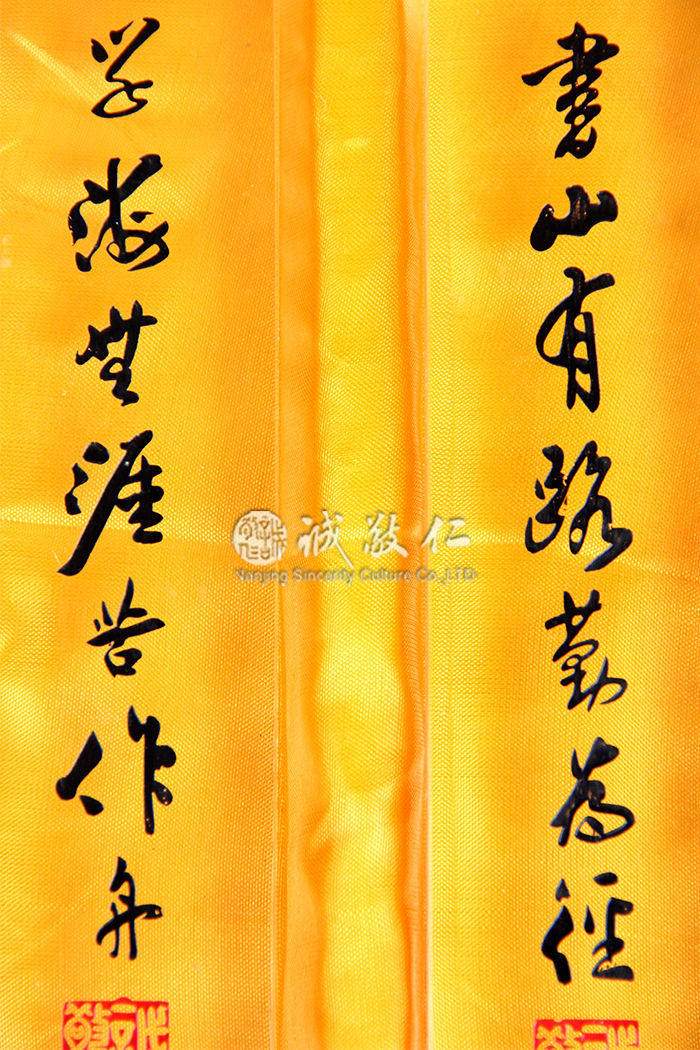 書山有路勤為徑
学海無涯苦作舟
诚敬仁
Nanjing Sincerity Culture Co.,LTD